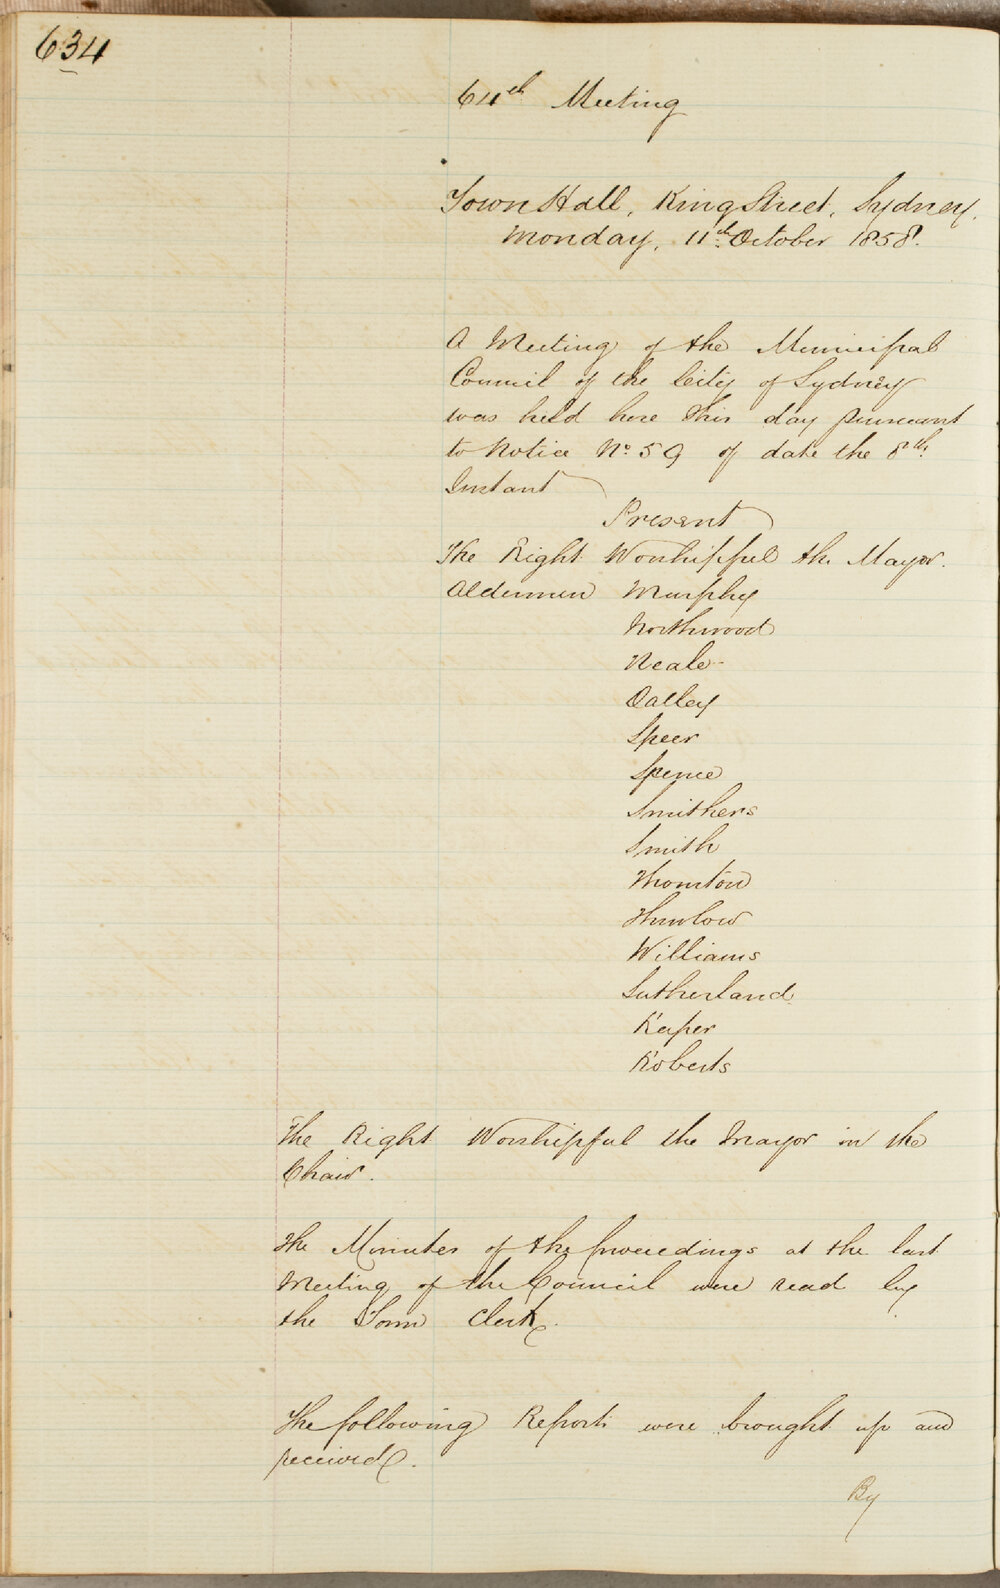 634
64th Meeting
Town Hall, King Street, Sydney,
Monday, 11th October 1858.
A Meeting of the Municipal
Council of the City of Sydney
was held here this day pursuant
to Notice No. 59 of date the 8th
Instant
Present
The Right Worshipful the Mayor.
Aldermen Murphy
Northwood
Neale
Oatley
Speer
Spence
Smithers
Smith
Thornton
Thurlow
Williams
Sutherland
Raper
Roberts
The Right Worshipful the Mayor in the
Chair.
The Minutes of the Proceedings at the last
Meeting of the Council were read by
the Town Clerk.
The following Reports were brought up and
received.
By